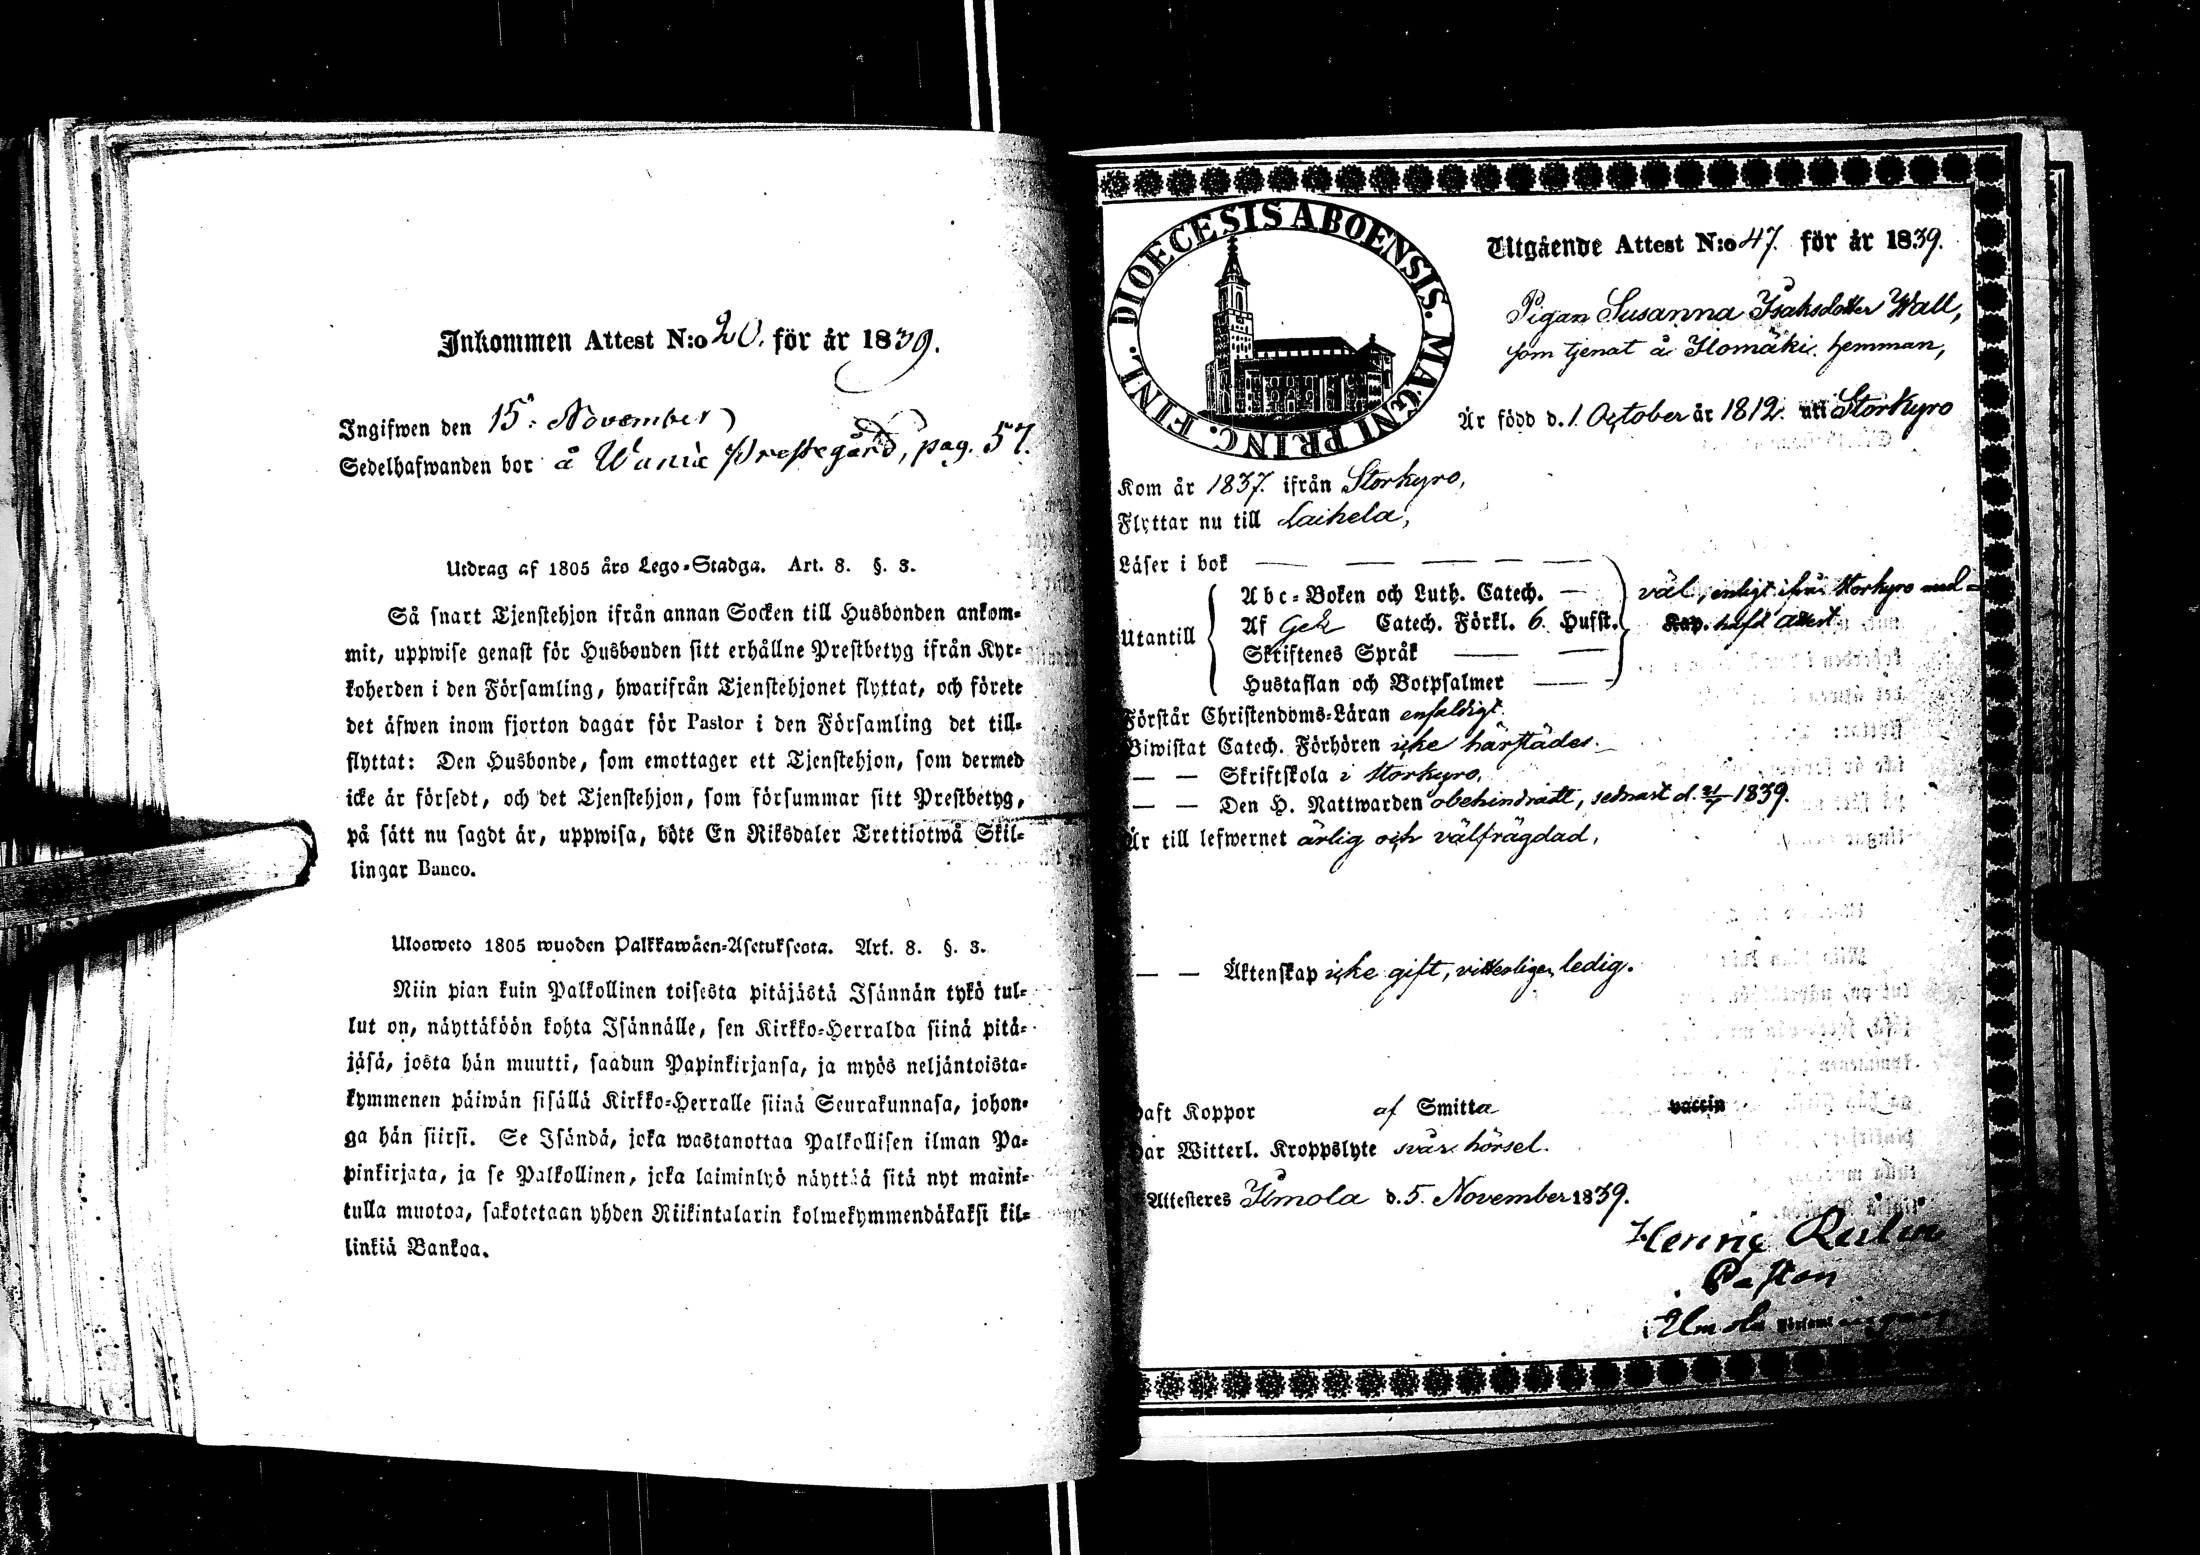 Inkommen Attest N:o 20. för år 1839.
Ingifwen den 15. November
Sedelhafwanden bor å Prestegård, pag. 57.
Utdrag af 1805 års Lego-Stadga. Art. 8. §. 3.
Så snart Tjenstehjon ifrån annan Socken till Husbonden ankom-
mit, uppwise genast för Husbonden sitt erhållne Prestbetyg ifrån Kyr-
koherden i den Församling, hwarifrån Tjenstehjonet flyttat, och förete
det äfwen inom fjorton dagar för Pastor i den Församling det till-
flyttat: Den Husbonde, som emottager ett Tjenstehjon, som dermed
icke är försedt, och det Tjenstehjon, som försummar sitt Prestbetyg,
på sätt nu sagdt är, uppwisa, böte En Riksdaler Trettiotwå Skil-
lingar Banco.
Ulosweto 1805 wuoden Palkkawäen-Asetuksesta. Art. 8. §. 3.
Niin pian kuin Palkollinen toisesta pitäjästä Isännän tykö tul-
lut on, näyttäköön kohta Isännälle, sen Kirkko-Herralda siinä pitä-
jäsä, josta hän muutti, saadun Papinkirjansa, ja myös neljäntoista-
kymmenen päiwän sisällä Kirkko-Herralle siinä Seurakunnasa, johon-
ga hän siirsi. Se Isändä, joka wastanottaa Palkollisen ilman Pa-
pinkirjata, ja se Palkollinen, joka laiminlyö näyttää sitä nyt maini-
tulla muotoa, sakotetaan yhden Riikintalarin kolmekymmendäkaksi kil-
linkiä Bankoa.
DIOECESIS ABOENSIS. MAGNI PRINC. FINL.
Utgående Attest N:o 47. för år 1839.
Pigan Susanna Isaksdotter Wall,
som tjenat å Ilomäki hemman,
Är född d. 1. October år 1812. uti Storkyro
Kom år 1837. ifrån Storkyro,
Flyttar nu till Laihela,
Läser i bok
Utantill
Abc-Boken och Luth. Catech.
Af Catech. Förkl. 6 Hufst.
Skriftenes Språk
Hustaflan och Botpsalmer
väl, enligt ifrån Storkyro med-
Kap. haft attest
Förstår Christendoms-Läran enfaldigt.
Biwistat Catech. Förhören icke härstädes.
— — Skriftskola i Storkyro,
— — Den H. Nattwarden obehindradt, sednast d. 21/7 1839.
Är till lefwernet ärlig och välfrägdad,
— — Äktenskap icke gift, vitterligen ledig.
Haft Koppor af Smitta vaccin
Har Witterl. Kroppslyte svår hörsel.
Attesteres Ilmola d. 5. November 1839.
Henric
Pastor
i Ilmola